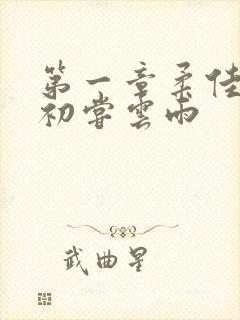 第一章柔佳
初嘗雲雨
武曲星